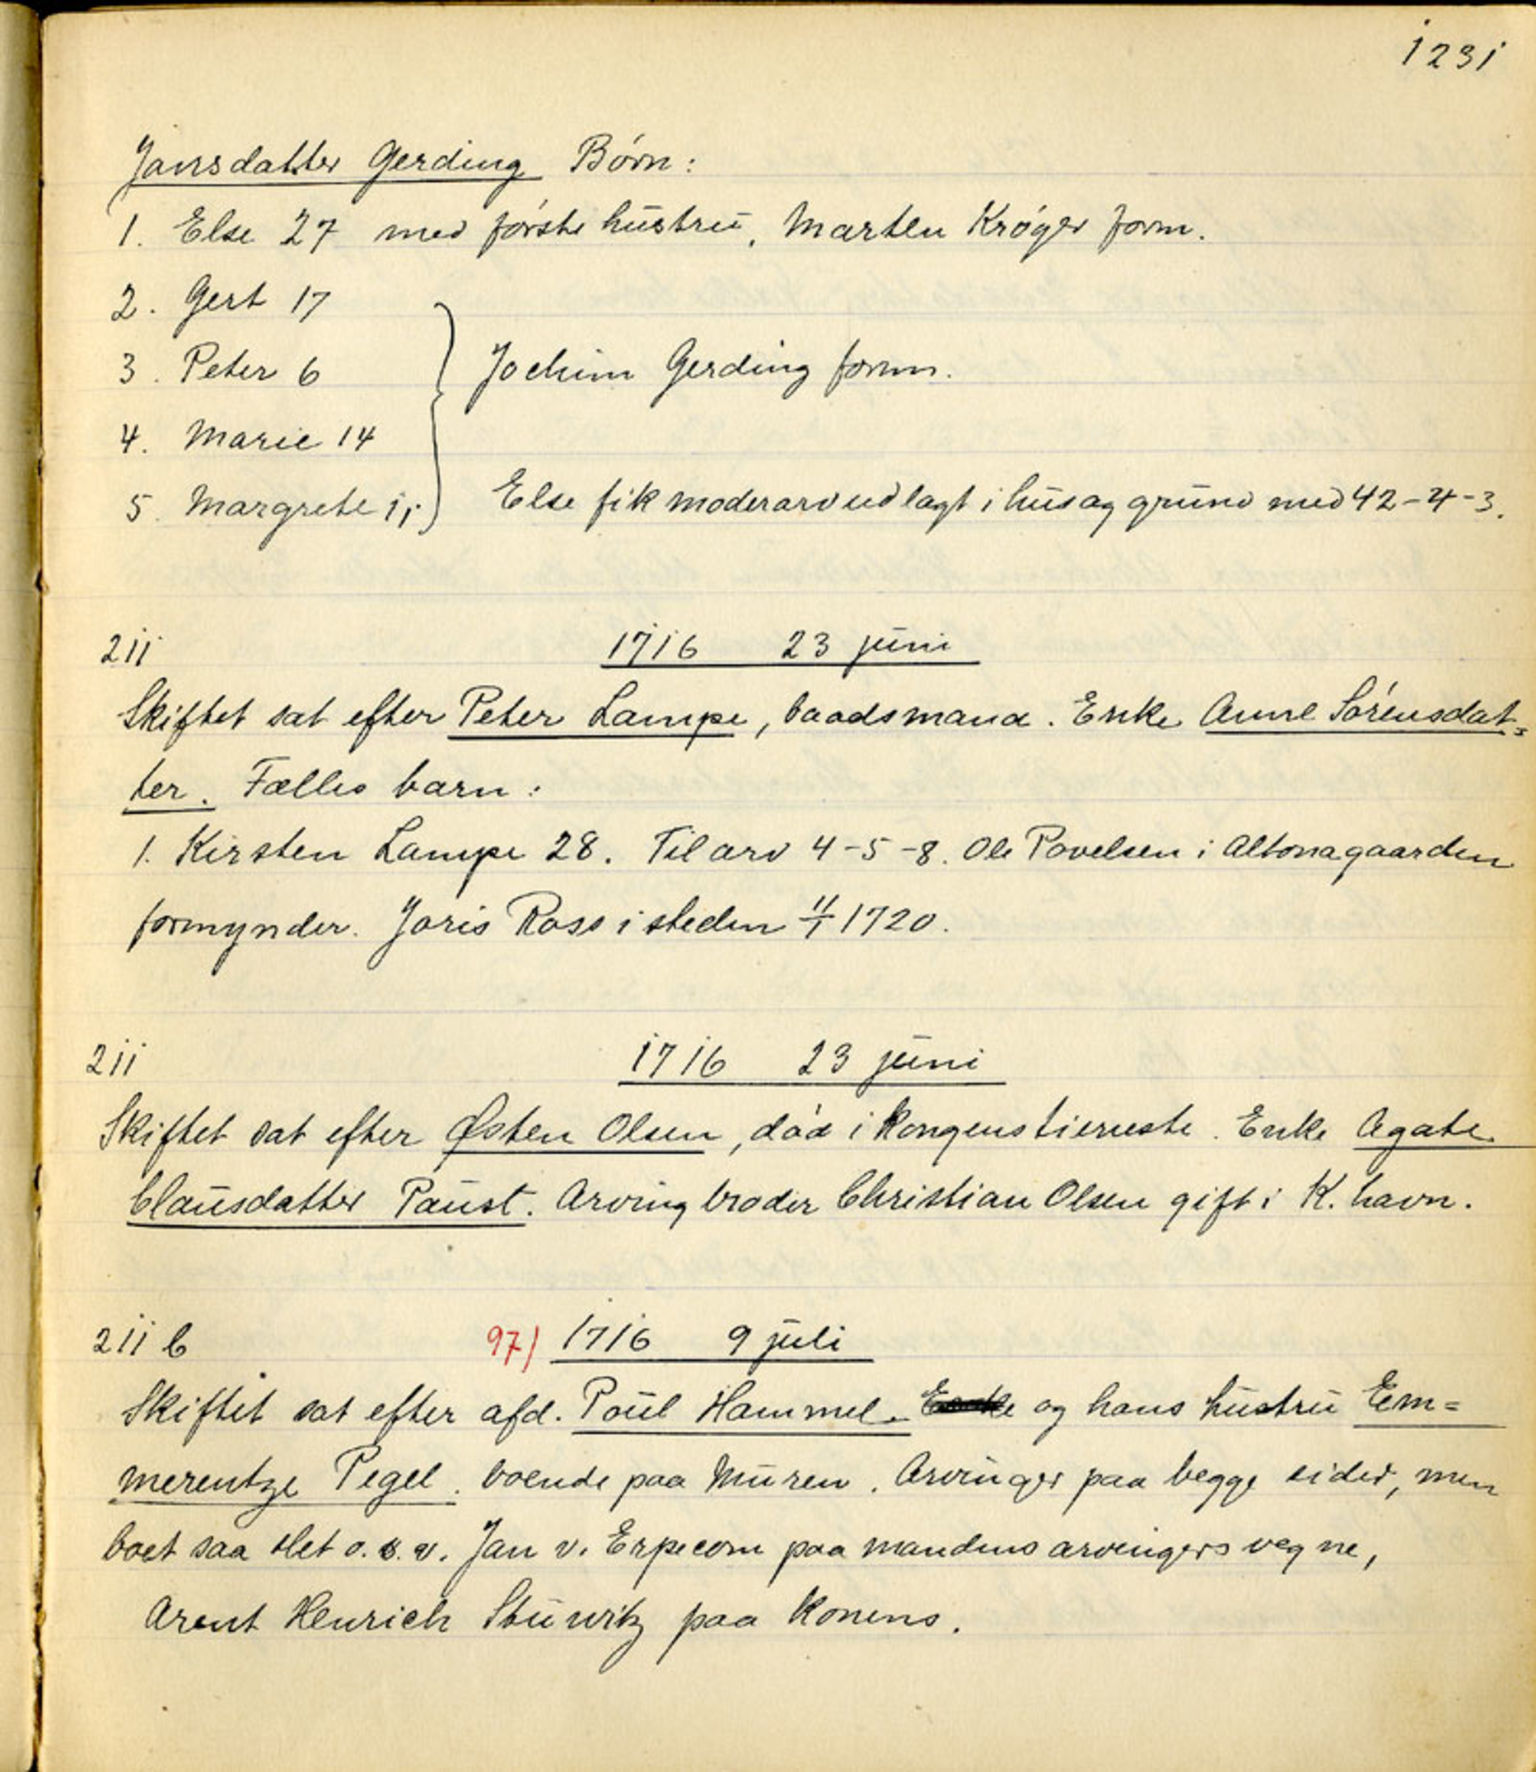 1231
Jansdatter Gerding Børn:
1. Else 27 med første hustru, Marten Krøger form.
2. Gert 17
3. Peter 6 } Jochim Gerding form.
4. Marie 14
5. Margrete 11 Else fik moderarv udlagt i hus og grund med 42-4-3.
211 1716 23 juni
Skiftet sat efter Peter Lampe, baadsmand. Enke Anne Sørensdat=
ter. Fælles barn:
1. Kirsten Lampe 28. Til arv 4-5-8. Ole Povelsen i Altonagaarden
formynder. Joris Ross i steden 11/1 1720.
211 1716 23 juni
Skiftet sat efter Østen Olsen, død i kongens tieneste. Enke Agate
Clausdatter Paust. Arving broder Christian Olsen gift i K.havn.
211 b 97) 1716 9 juli
Skiftet sat efter afd. Poul Hammel. Enke og hans hustru Em=
merentze Pegel. boende paa Muren. Arvinger paa begge sider, men
boet saa slet o.s.v. Jan v. Erpecom paa mandens arvingers vegne,
Arent Henrich Stuwitz paa konens.